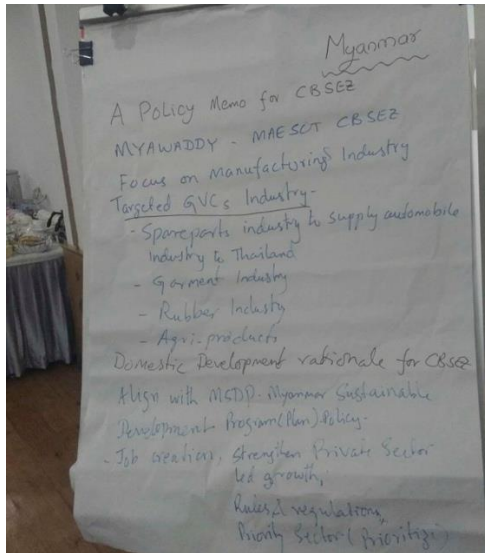 Myanmar
A Policy Memo for CBSEZ
MYAWADDY - MAESOT CBSEZ
Focus on Manufacturing Industry
Targeted GVCs Industry -
- Spareparts industry to supply automobile
Industry to Thailand
- Garment Industry
- Rubber Industry
- Agri-products
Domestic Development rationale for CBSEZ
Align with MSDP - Myanmar Sustainable
Development Program (Plan) Policy -
- Job creations, Strengthen Private Sector
Led growth,
Rules, regulations,
Priority Sector (Prioritizi)